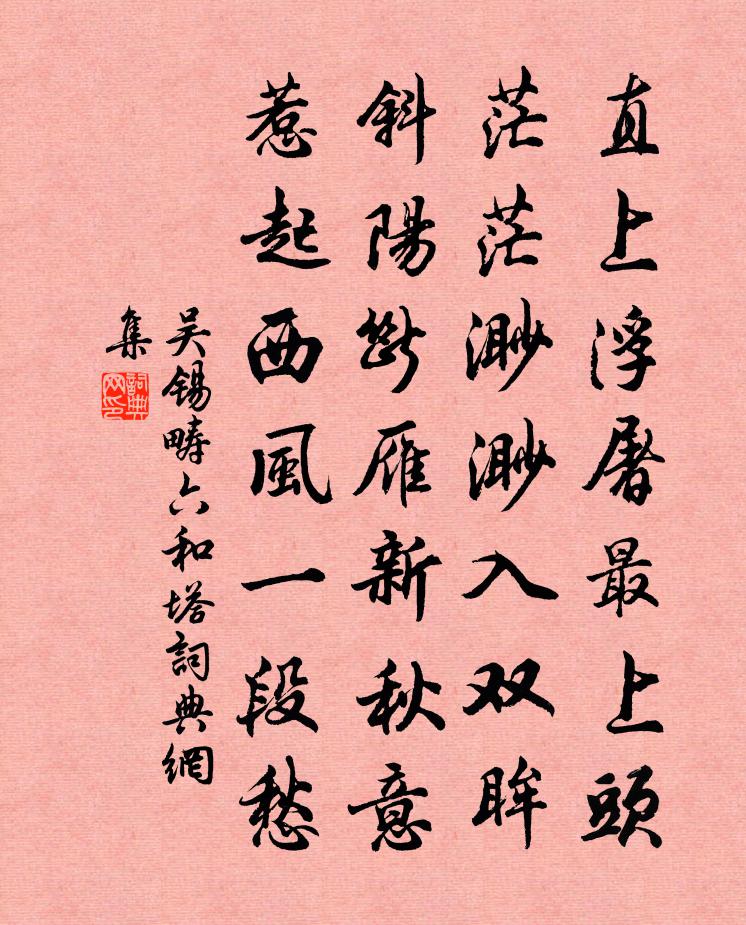 直上浮屠最上頭
茫茫渺渺入双眸
斜陽断雁新秋意
惹起西風一段愁
吴錫疇六和塔詞典網
集
詞典网印